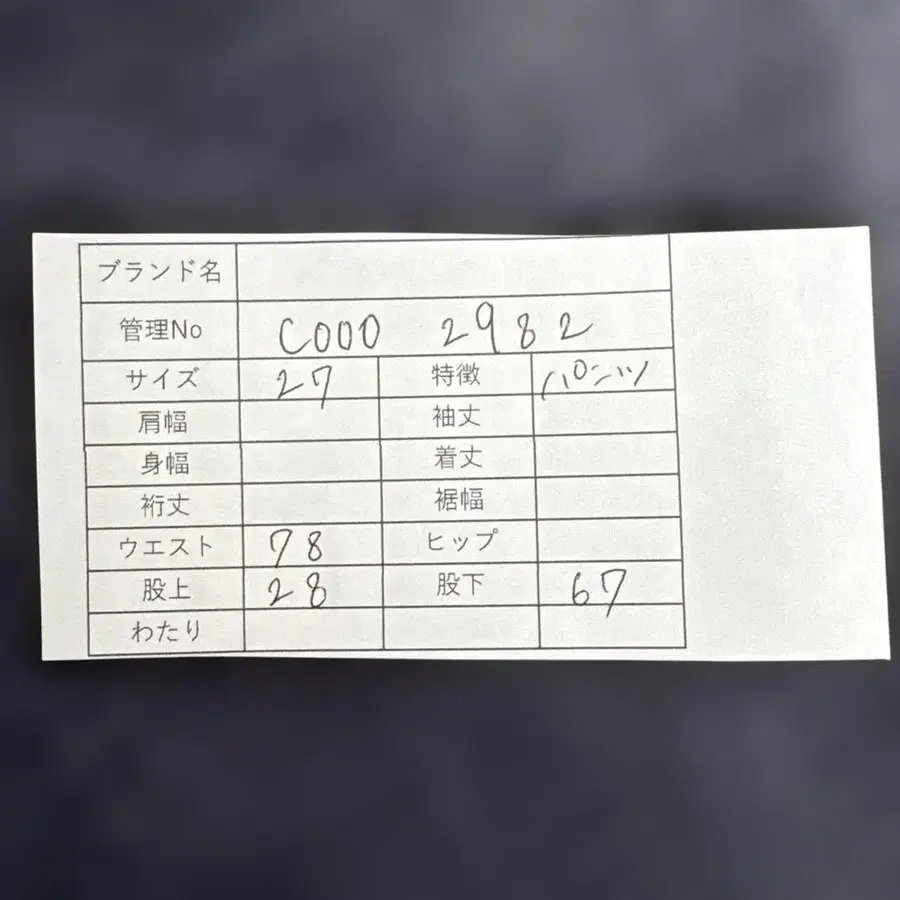 ブランド名
管理No C000 2982
サイズ 27 特徴 パンツ
肩幅 袖丈
身幅 着丈
裄丈 裾幅
ウエスト 78 ヒップ
股上 28 股下 67
わたり